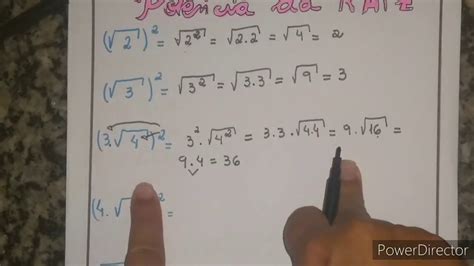 Potência da RAIZ
(√2)² = √2² = √2.2 = √4 = 2
(√3)² = √3² = √3.3 = √9 = 3
(3.√4)² = 3².√4² = 3.3.√4.4 = 9.√16 =
9.4 = 36
(4.√ ² =
PowerDirector